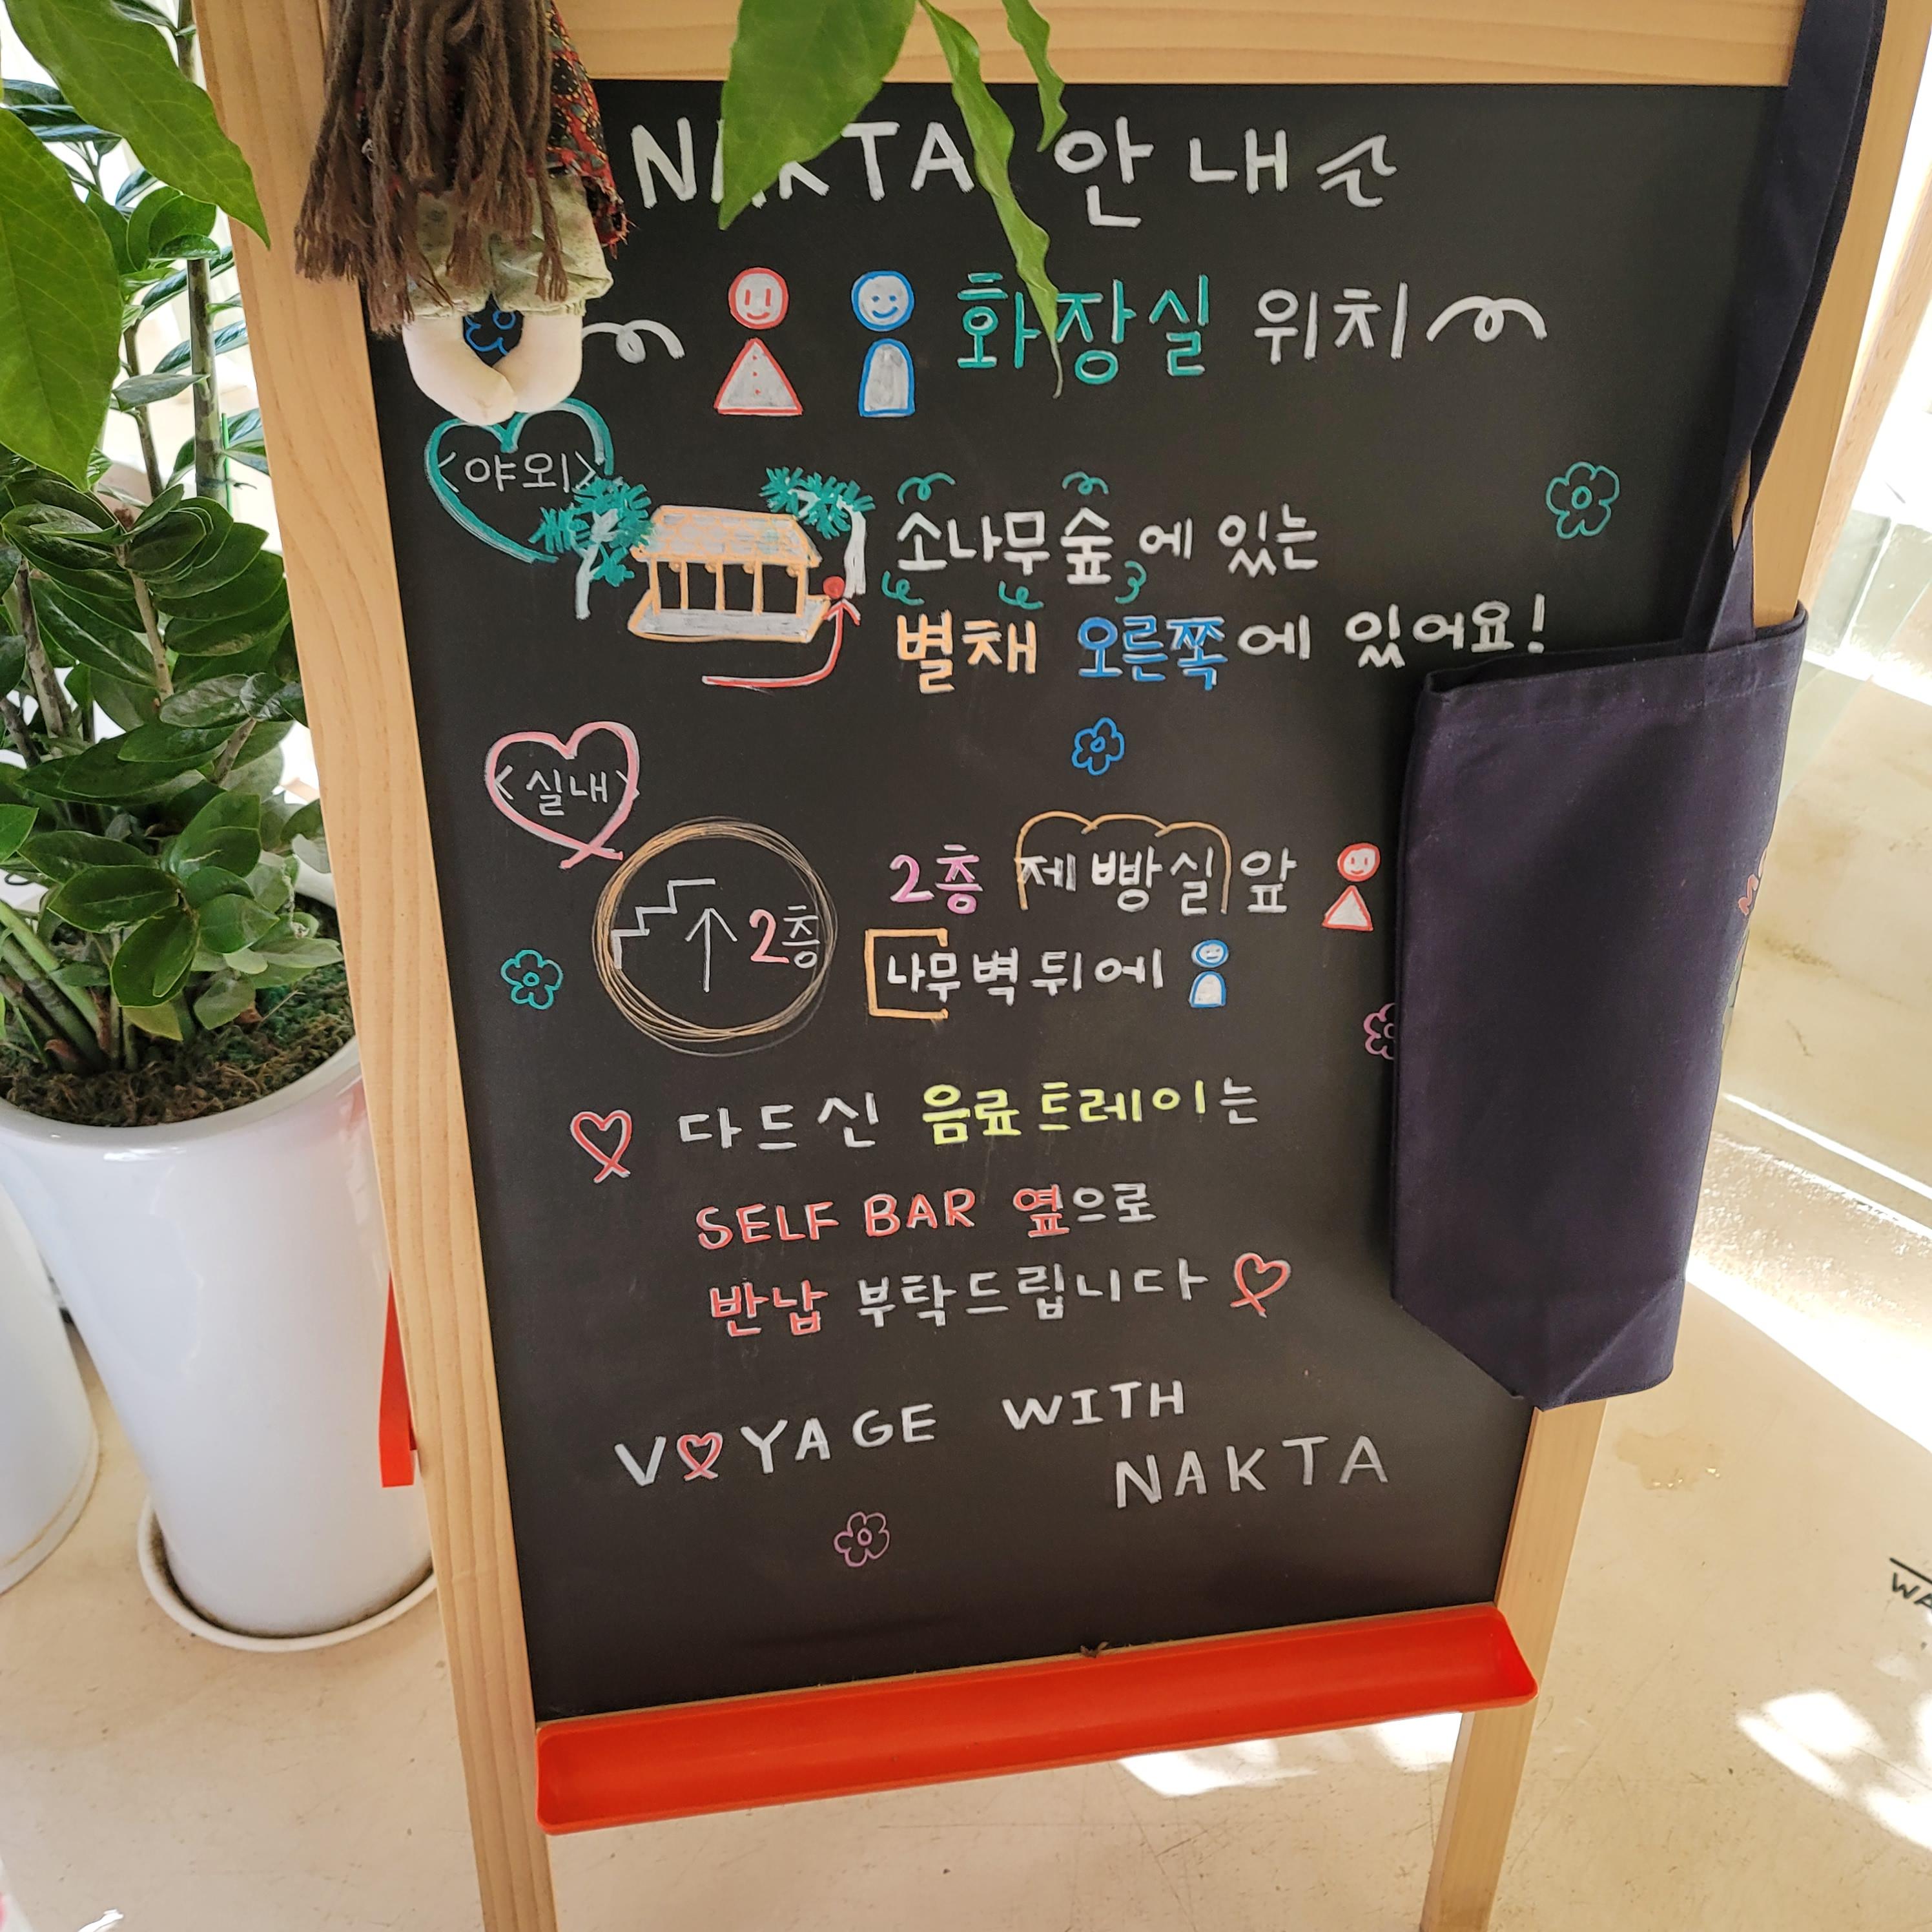 NAKTA 안내
화장실 위치
<야외>
소나무숲에 있는
별채 오른쪽에 있어요!
<실내>
2층
2층 제빵실 앞
나무벽 뒤에
다드신 음료트레이는
SELF BAR 옆으로
반납 부탁드립니다
VOYAGE WITH
NAKTA